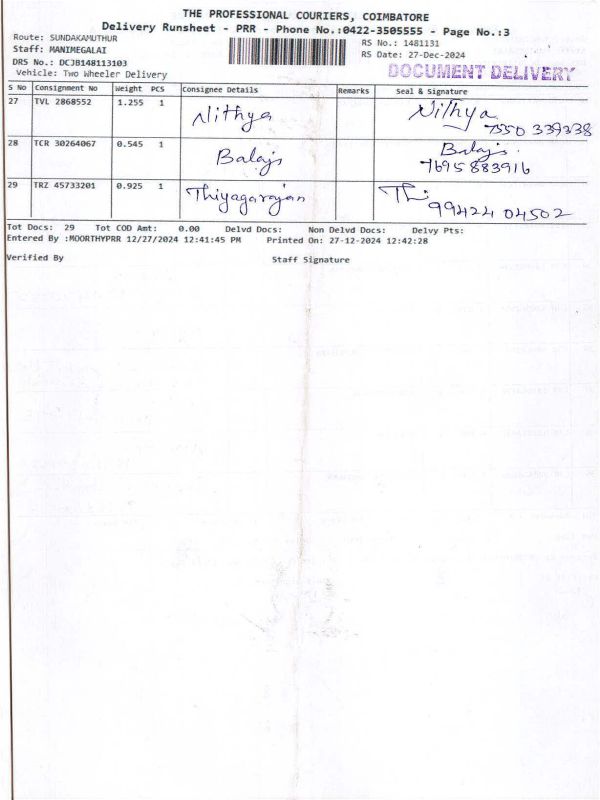 THE PROFESSIONAL COURIERS, COIMBATORE
Delivery Runsheet - PRR - Phone No.:0422-3505555 - Page No.:3
Route: SUNDAKAMUTHUR
RS No.: 1481131
Staff: MANIMEGALAI
RS Date: 27-Dec-2024
DRS No.: DCJB148113103
DOCUMENT DELIVERY
Vehicle: Two Wheeler Delivery
S No Consignment No Weight PCS Consignee Details Remarks Seal & Signature
27 TVL 2868552 1.255 1 Nithya Nithya
7550 339338
28 TCR 30264067 0.545 1 Balaji Balaji.
7695 883916
29 TRZ 45733201 0.925 1 Thiyagarajan Thi
99424 04502
Tot Docs: 29 Tot COD Amt: 0.00 Delvd Docs: Non Delvd Docs: Delvy Pts:
Entered By :MOORTHYPRR 12/27/2024 12:41:45 PM Printed On: 27-12-2024 12:42:28
Verified By Staff Signature